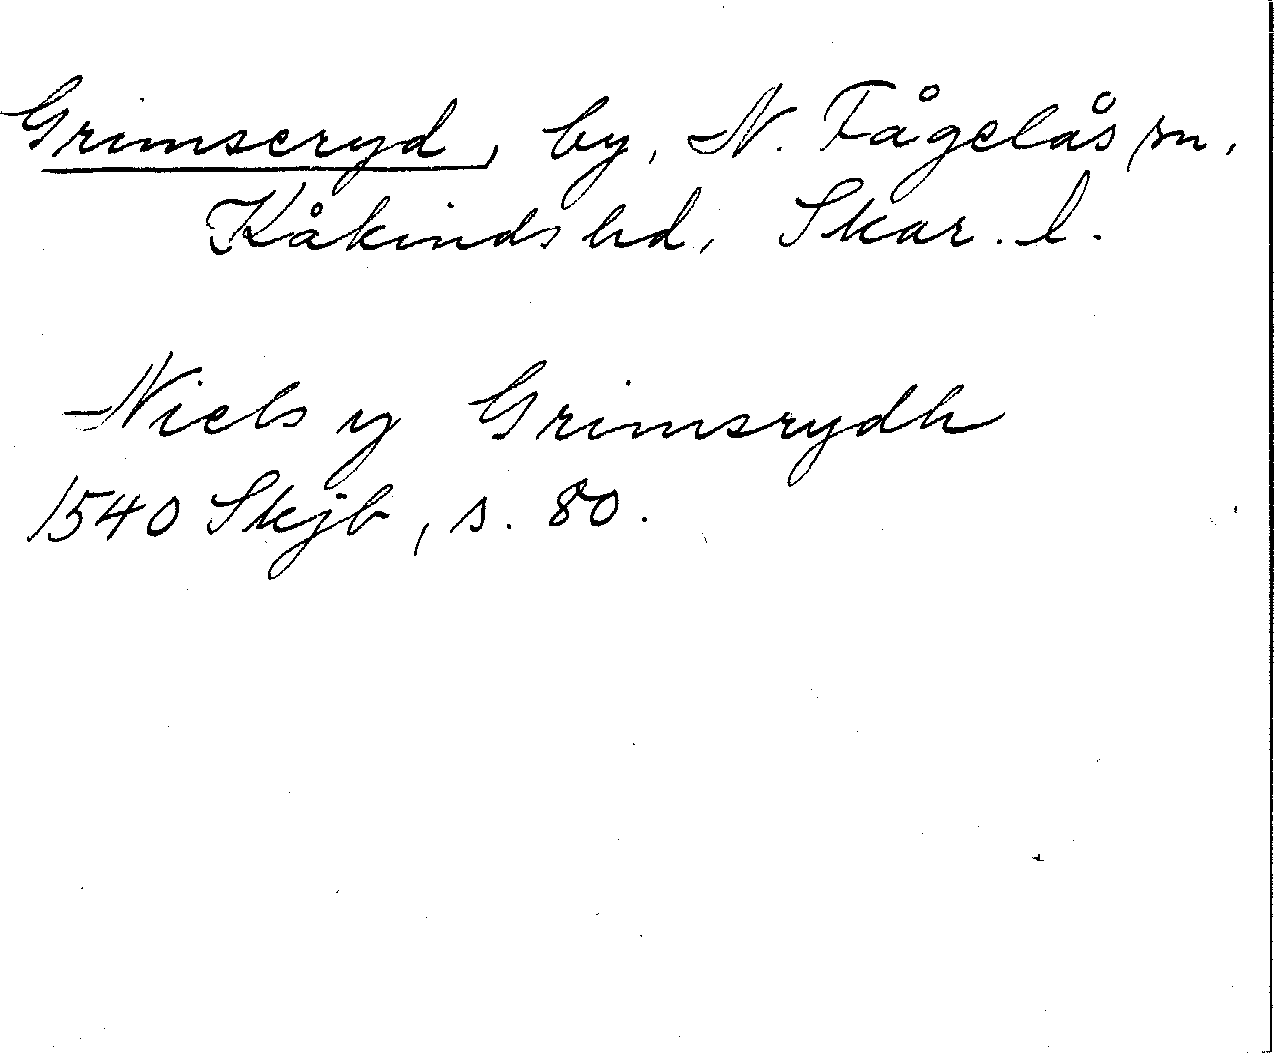 Grimseryd, by, N. Fågelås sn,
Kåkinds hd, Skar. l.
Niels y Grimsrydh
1540 Skjb, s. 80.